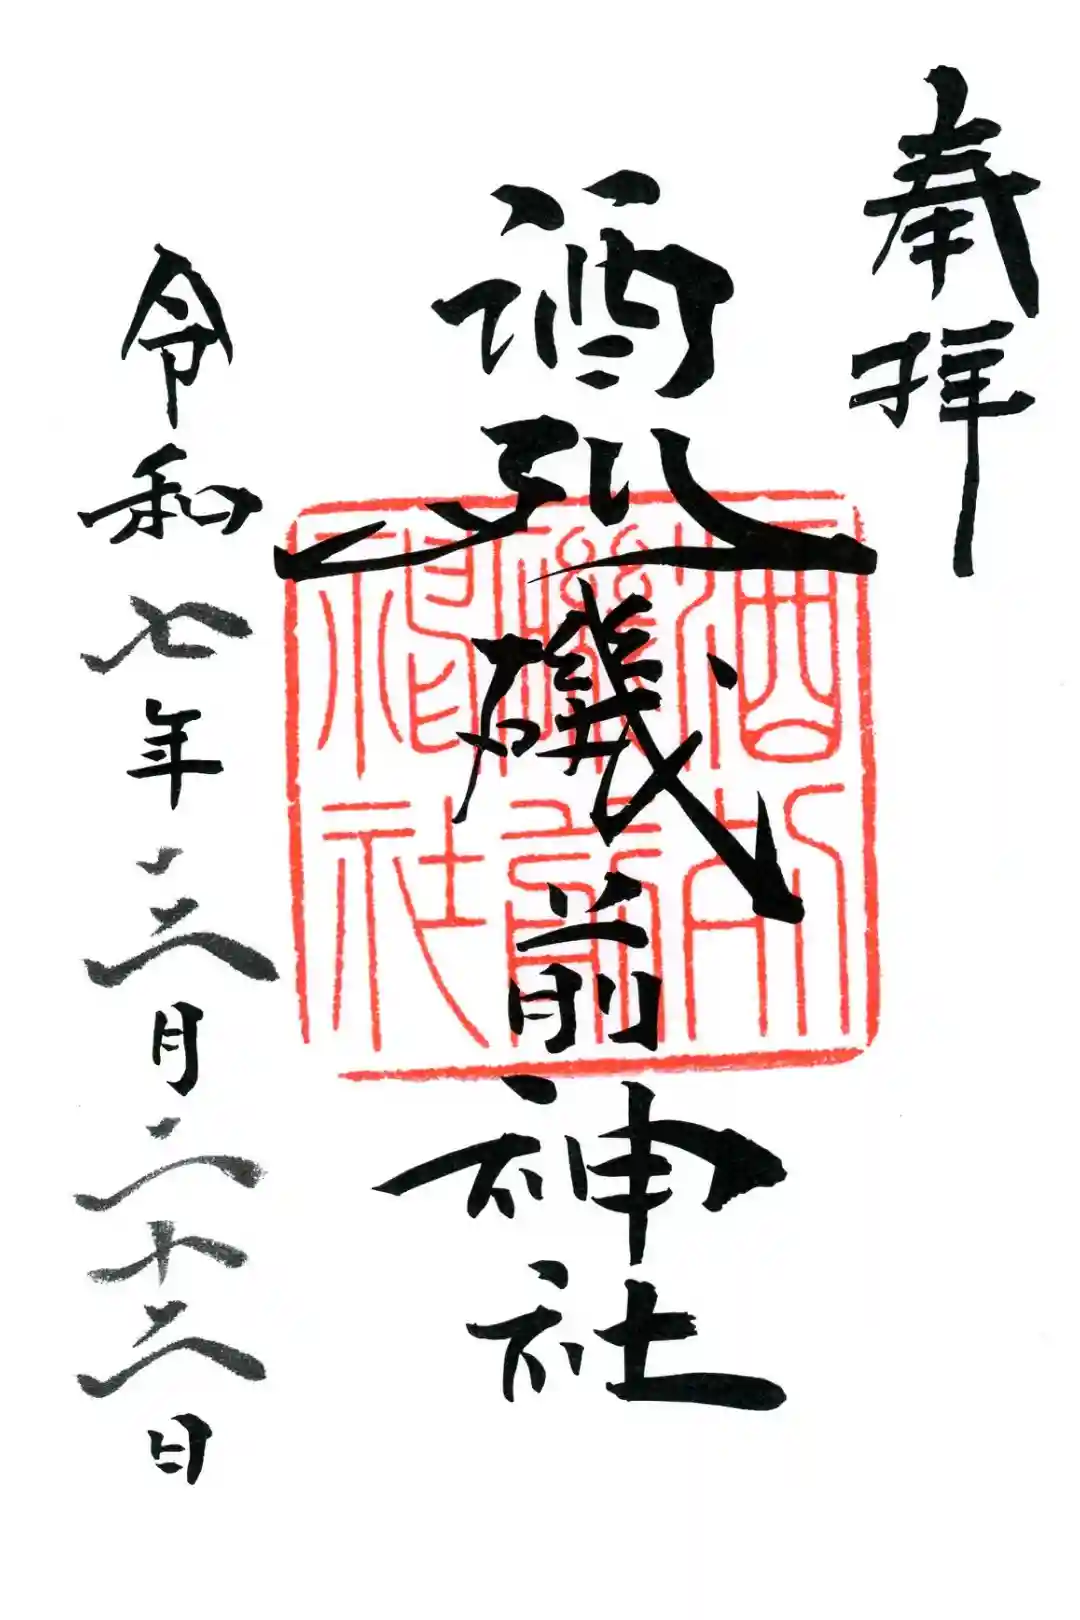 奉拝
酒列磯前神社
酒列
磯前
神社
令和七年三月二十六日